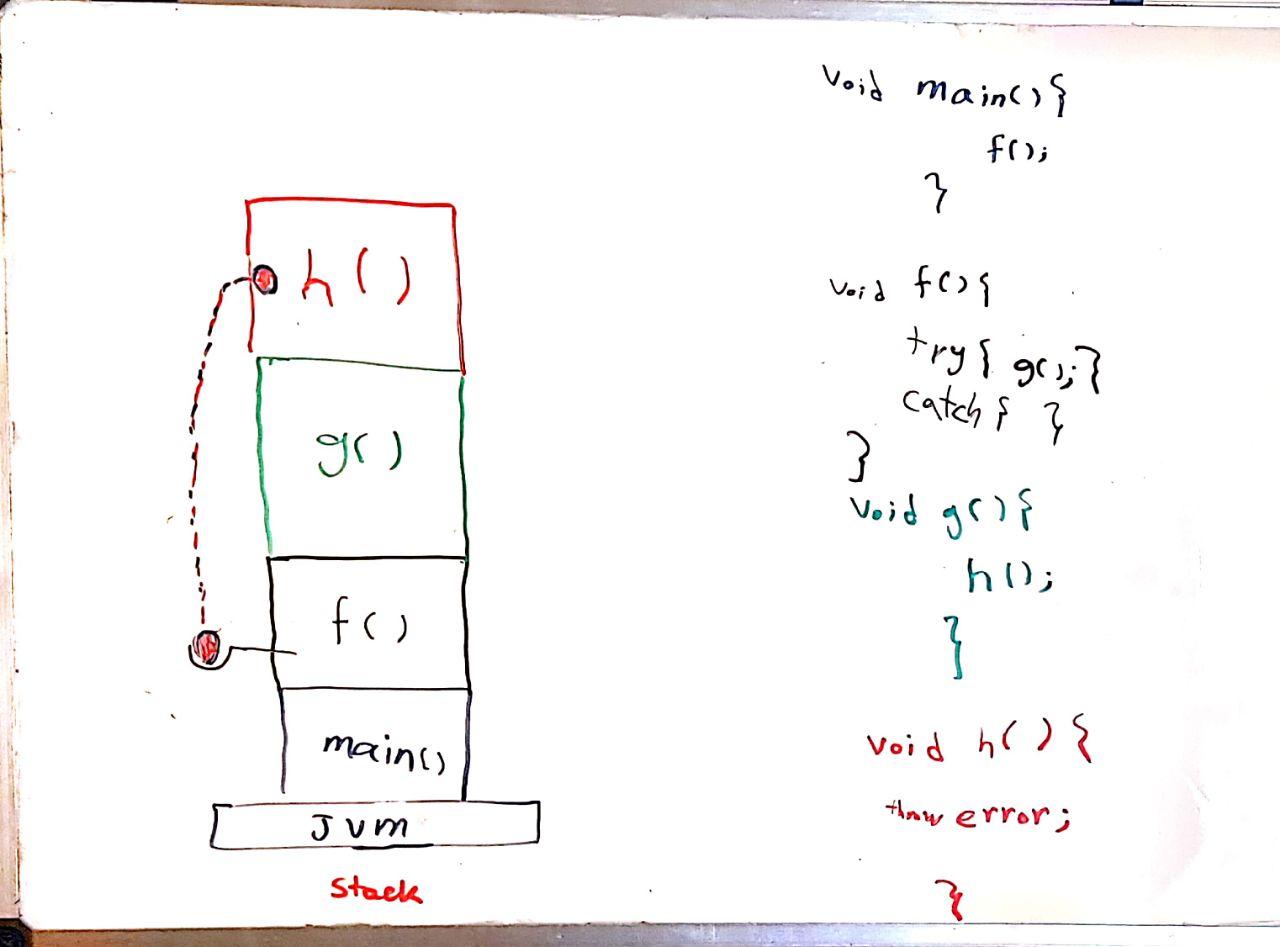 h()
g()
f()
main()
JVM
Stack
Void main(){
f();
}
Void f(){
try{ g(); }
catch{ }
}
Void g(){
h();
}
Void h(){
throw error;
}